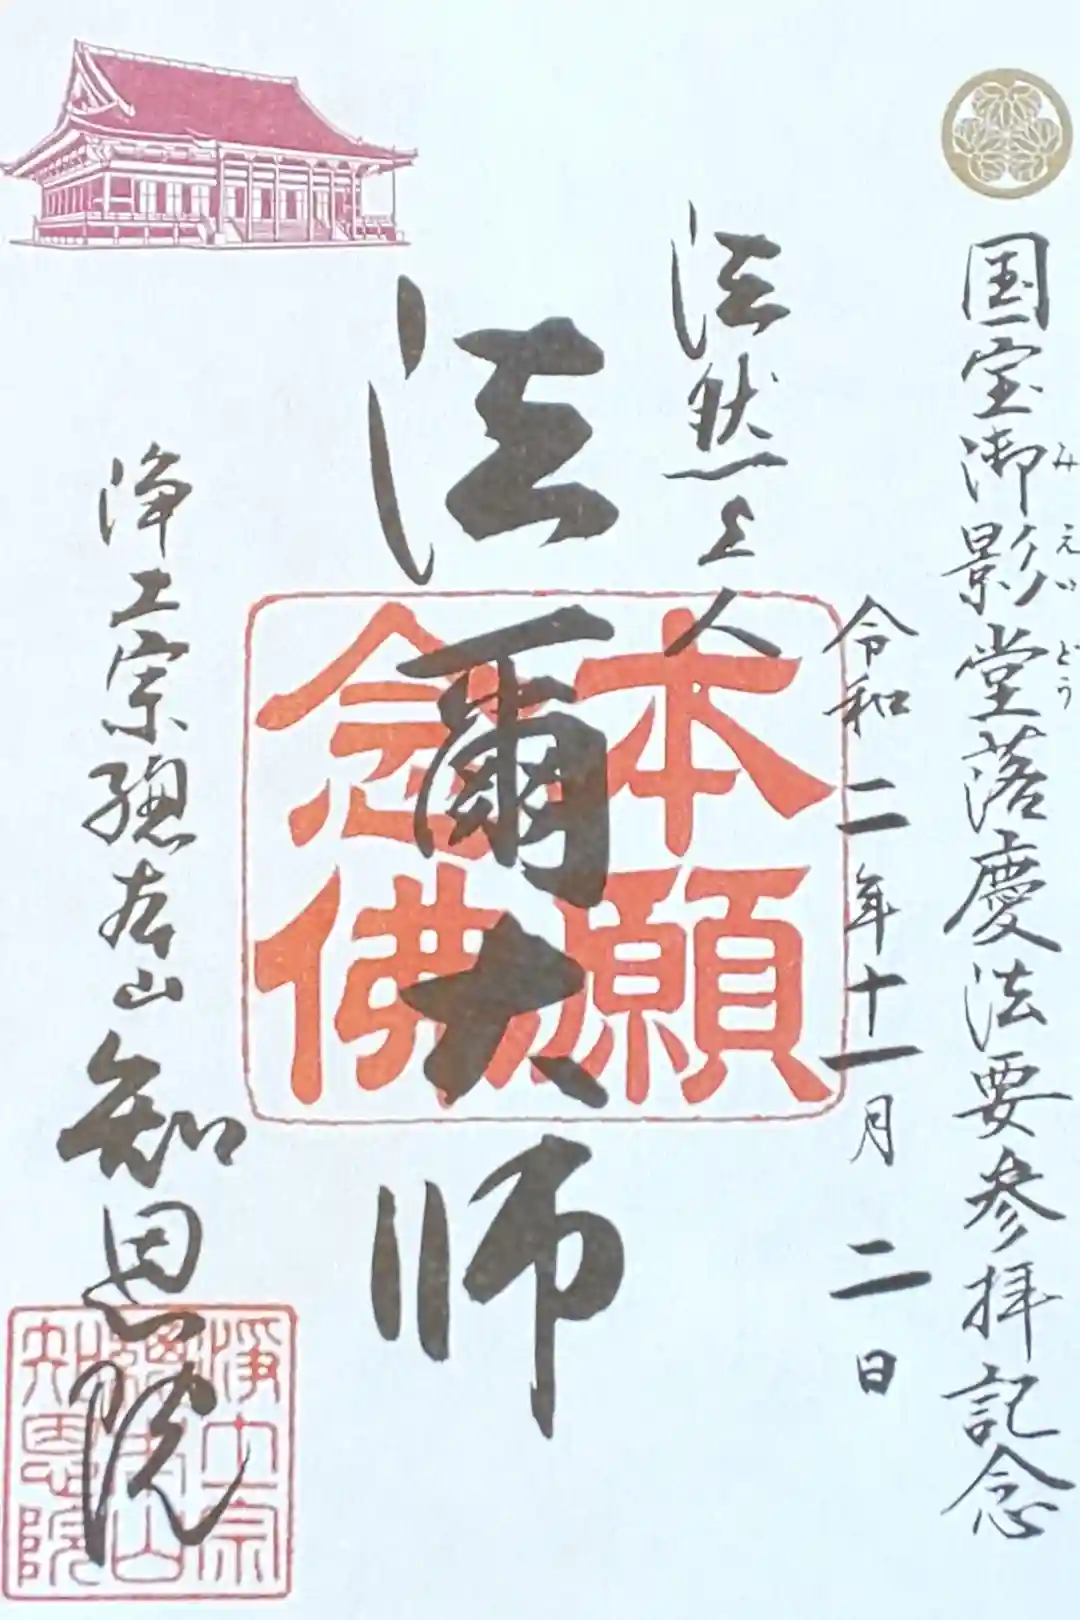 国宝御影堂落慶法要参拝記念
みえいどう
令和二年十一月二日
法然上人
法爾大師
本願
念佛
浄土宗總本山知恩院
浄土宗
總本山
知恩院